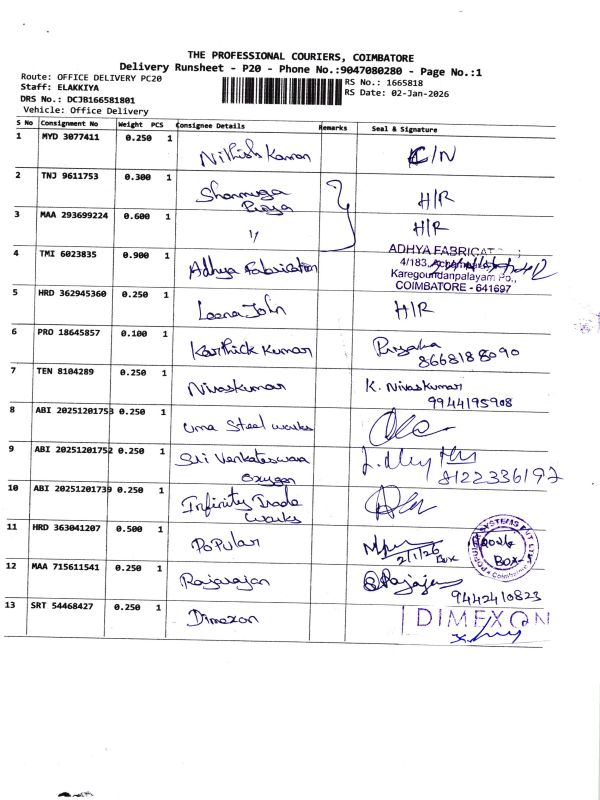 THE PROFESSIONAL COURIERS, COIMBATORE
Delivery Runsheet - P20 - Phone No.:9047080280 - Page No.:1
Route: OFFICE DELIVERY PC20
RS No.: 1665818
Staff: ELAKKIYA
RS Date: 02-Jan-2026
DRS No.: DCJB166581801
Vehicle: Office Delivery
S No Consignment No Weight PCS Consignee Details Remarks Seal & Signature
1 MYD 3077411 0.250 1 C/N
2 TNJ 9611753 0.300 1 Shanmuga Priya H/R
3 MAA 293699224 0.600 1 " H/R
4 TMI 6023835 0.900 1 Adhya Fabrication
ADHYA FABRICAT
4/183,
Karegoundanpalayam Po.,
COIMBATORE - 641697
5 HRD 362945360 0.250 1 Leena John H/R
6 PRO 18645857 0.100 1 Karthick Kumar Priyanka
8668188090
7 TEN 8104289 0.250 1 Nivaskumar K. Nivaskumar
9944195908
8 ABI 20251201753 0.250 1 Uma Steel works
9 ABI 20251201752 0.250 1 Sri Venkateswara
Oxygen 8122336197
10 ABI 20251201739 0.250 1 Infinity Trade
Works
11 HRD 363041207 0.500 1 Popular
2/1/26 Box
SYSTEMS PVT LTD
Coimbatore
Box-1
12 MAA 715611541 0.250 1 Rajarajan
9442410823
13 SRT 54468427 0.250 1 Dimexon DIMEXON